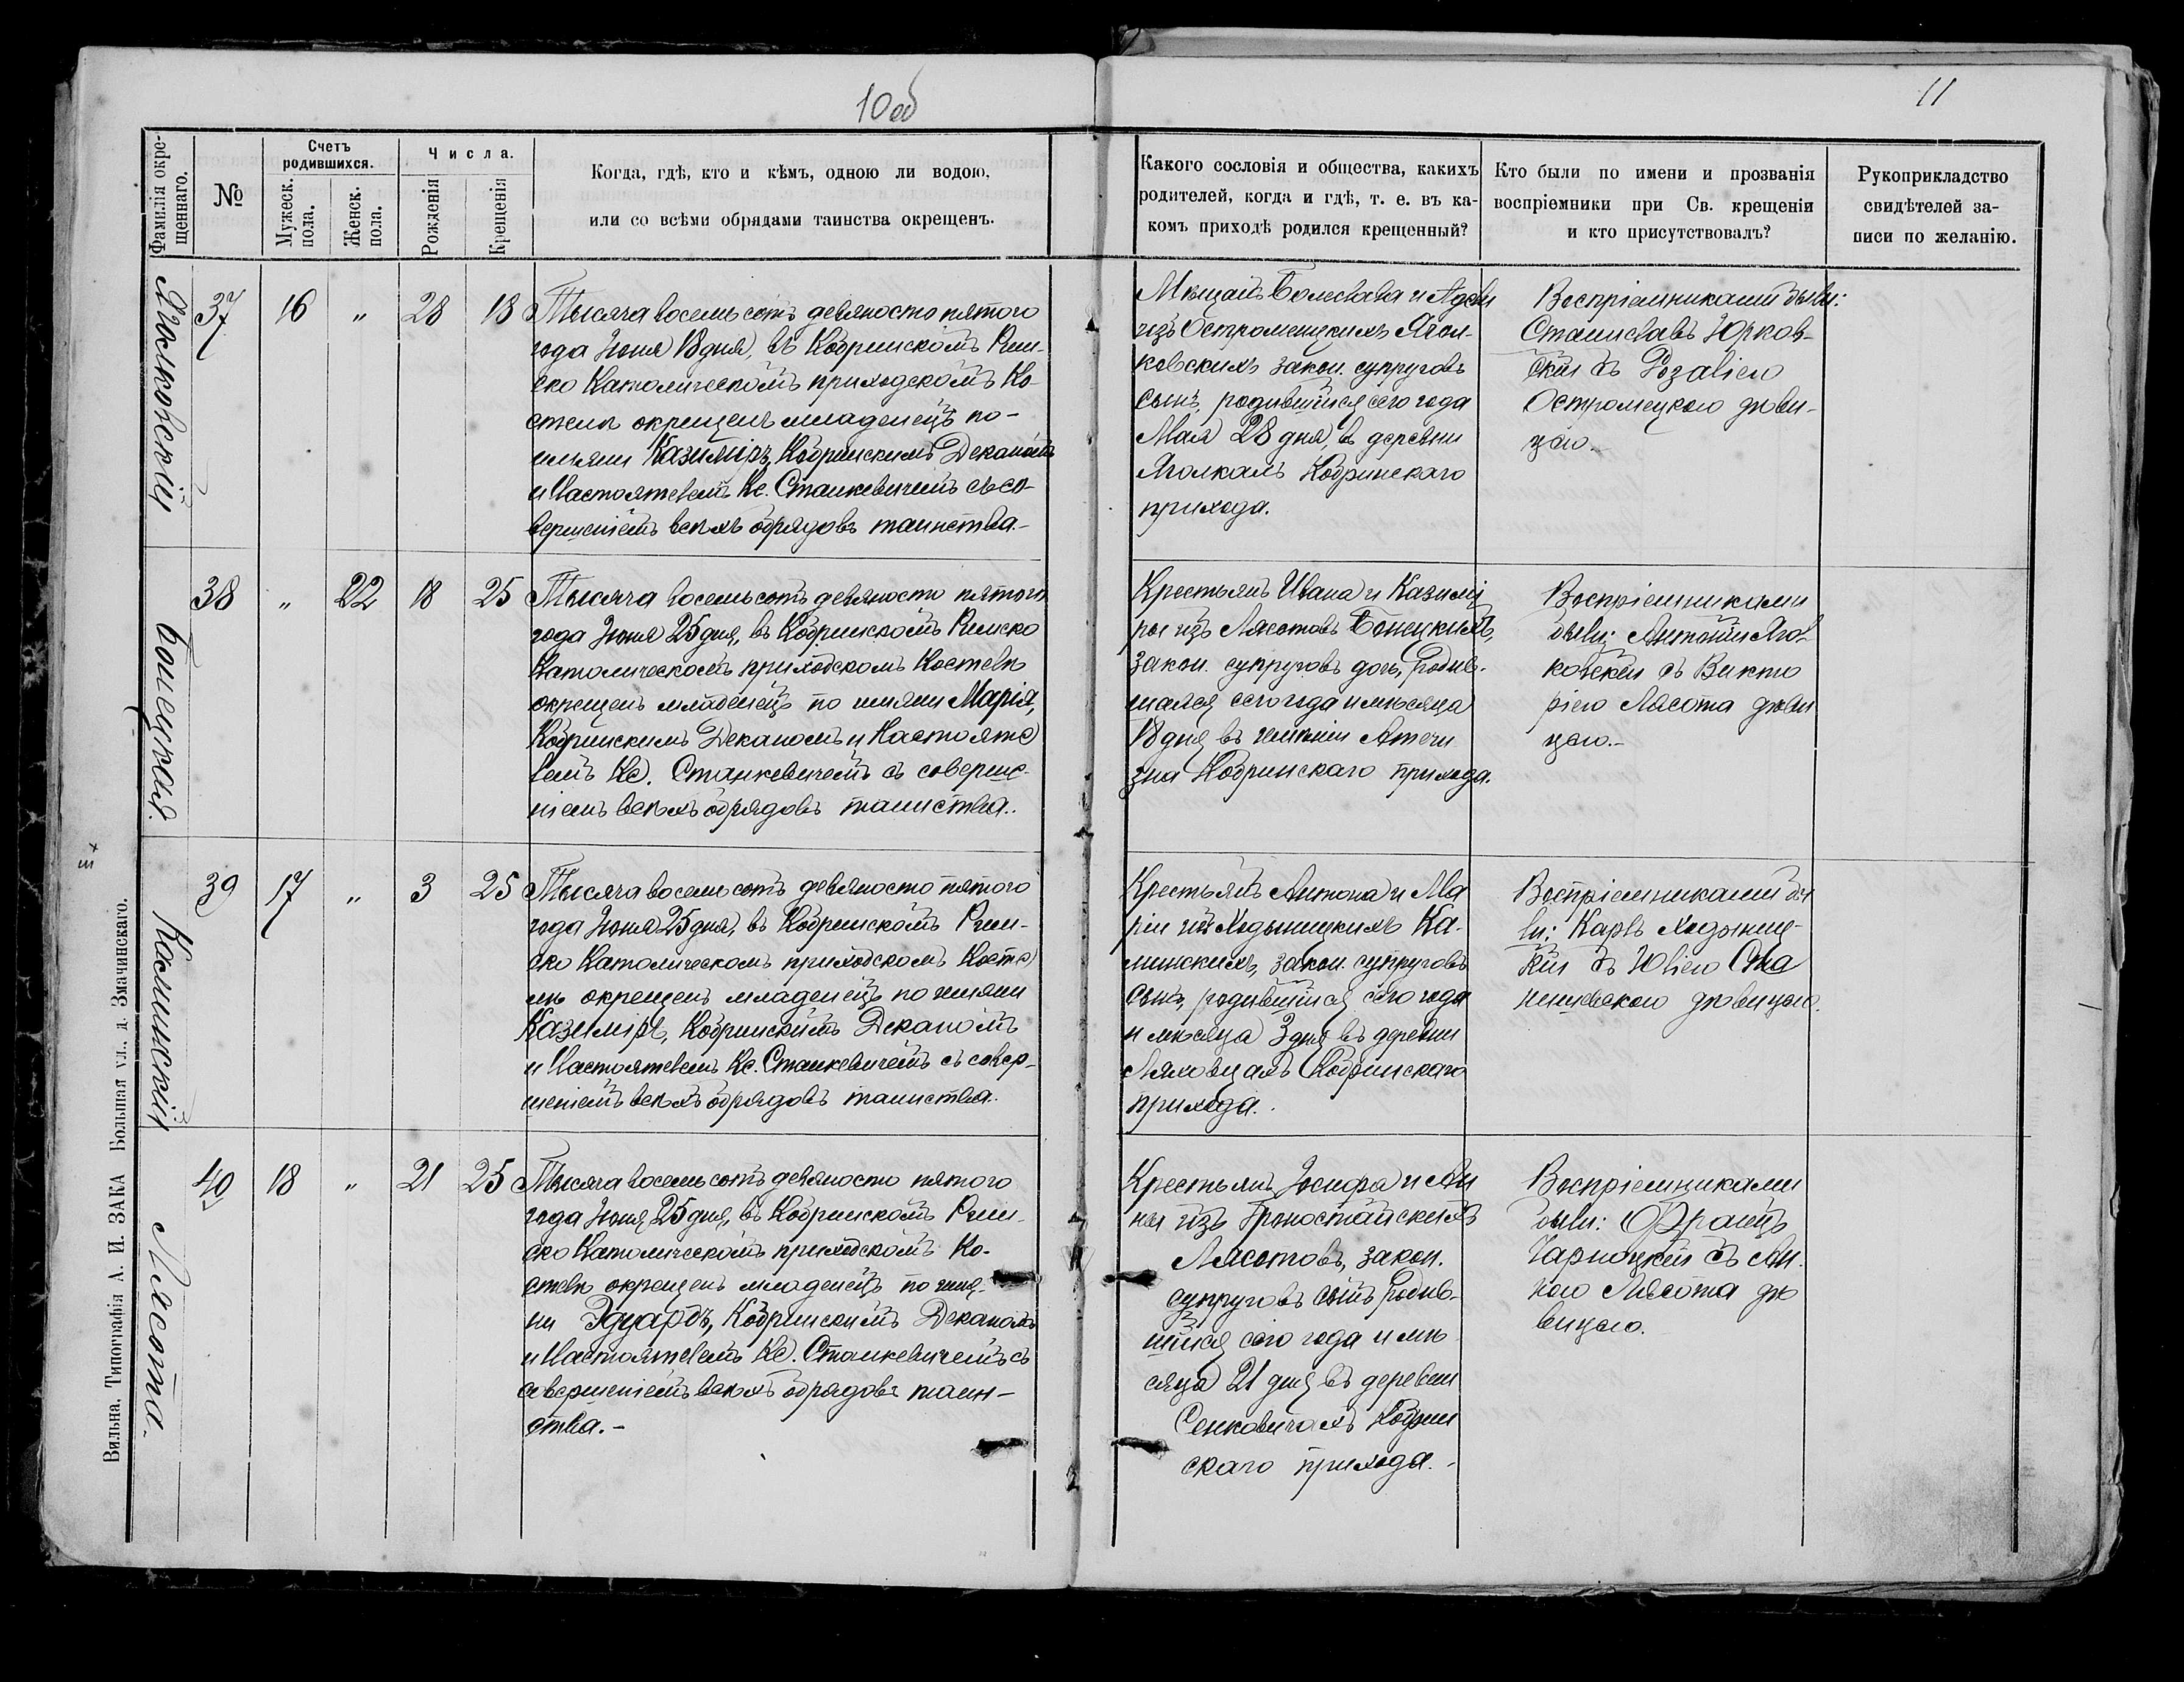 10об
11
Фамилія окре-
щеннаго.
№
Счетъ
родившихся.
Мужеск.
пола.
Женск.
пола.
Числа.
Рожденія
Крещенія
Когда, гдѣ, кто и кѣмъ, одною ли водою,
или со всѣми обрядами таинства окрещенъ.
Какого сословія и общества, какихъ
родителей, когда и гдѣ, т. е. въ ка-
комъ приходѣ родился крещенный?
Кто были по имени и прозванія
воспріемники при Св. крещеніи
и кто присутствовалъ?
Рукоприкладство
свидѣтелей за-
писи по желанію.
Яголковскій
37
16
„
28
18
Тысяча восемьсотъ девяносто пятого
года Іюня 18 дня, въ Кобринскомъ Рим-
ско Католическомъ приходскомъ Ко-
стелѣ окрещенъ младенецъ по-
имени Казимиръ, Кобринскимъ Деканомъ
и Настоятелемъ Кс. Станкевичемъ съ со-
вершеніемъ всѣхъ обрядовъ таинства.-
Мѣщанъ Болеслава и Адели
изъ Остромецкихъ Ягол-
ковскихъ закон. супруговъ
сынъ, родившійся сего года
Мая 28 дня, въ деревни
Яголкахъ Кобринскаго
прихода.
Воспріемниками были:
Станиславъ Юрков-
скій съ Розаліею
Остромецкою дѣви-
цею.
Бонецкая.
38
„
22
18
25
Тысяча восемьсотъ девяносто пятого
года Іюня 25 дня, въ Кобринскомъ Римско
Католическомъ приходскомъ Костелѣ
окрещенъ младенецъ по имени Марія,
Кобринскимъ Деканомъ и Настояте
лемъ Кс. Станкевичемъ съ соверше-
ніемъ всѣхъ обрядовъ таинства..
Крестьянъ Ивана и Казимі
ры изъ Лясотовъ Бонецкихъ,
закон. супруговъ дочь, родив-
шаяся сего года и мѣсяца
18 дня въ имѣніи Атечи
зна Кобринскаго прихода.
Воспріемниками
были: Антоній Ягол-
ковскій съ Викто
ріею Лясота дѣви
цею.-
Каминскій
39
17
„
3
25
Тысяча восемьсотъ девяносто пятого
года Іюня 25 дня, въ Кобринскомъ Рим-
ско Католическомъ приходскомъ Косте
лѣ окрещенъ младенецъ по имени
Казиміръ, Кобринскимъ Деканомъ
и Настоятелемъ Кс. Станкевичемъ съ совер-
шеніемъ всѣхъ обрядовъ таинства.
Крестьянъ Антона и Ма
ріи изъ Ходыницкихъ Ка-
минскихъ, закон. супруговъ
сынъ, родившійся сего года
и мѣсяца 3 дня въ деревни
Ляховцахъ Кобринскаго
прихода.
Воспріемниками бы
ли: Карлъ Ходыниц-
кій съ Юліею
дѣвицею.
Лясота.
40
18
„
21
25
Тысяча восемьсотъ девяносто пятого
года Іюня 25 дня, въ Кобринскомъ Рим-
ско Католическомъ приходскомъ Ко-
стелѣ окрещенъ младенецъ по име-
ни Эдуардъ, Кобринскимъ Деканомъ
и Настоятелемъ Кс. Станкевичемъ съ
совершеніемъ всѣхъ обрядовъ таин-
ства.-
Крестьянъ Іосифа и Ан
ны изъ Гроностайскихъ
Лясотовъ, закон.
супруговъ сынъ родив-
шійся сего года и мѣ
сяца 21 дня въ деревни
Сенковичахъ Кобрин
скаго прихода.-
Воспріемниками
были: Францъ
Чарноцкій съ Ан-
ною Лясота дѣ
вицею.
Вильна. Типографія А. И. ЗАКА Большая ул., д. Змачинскаго.